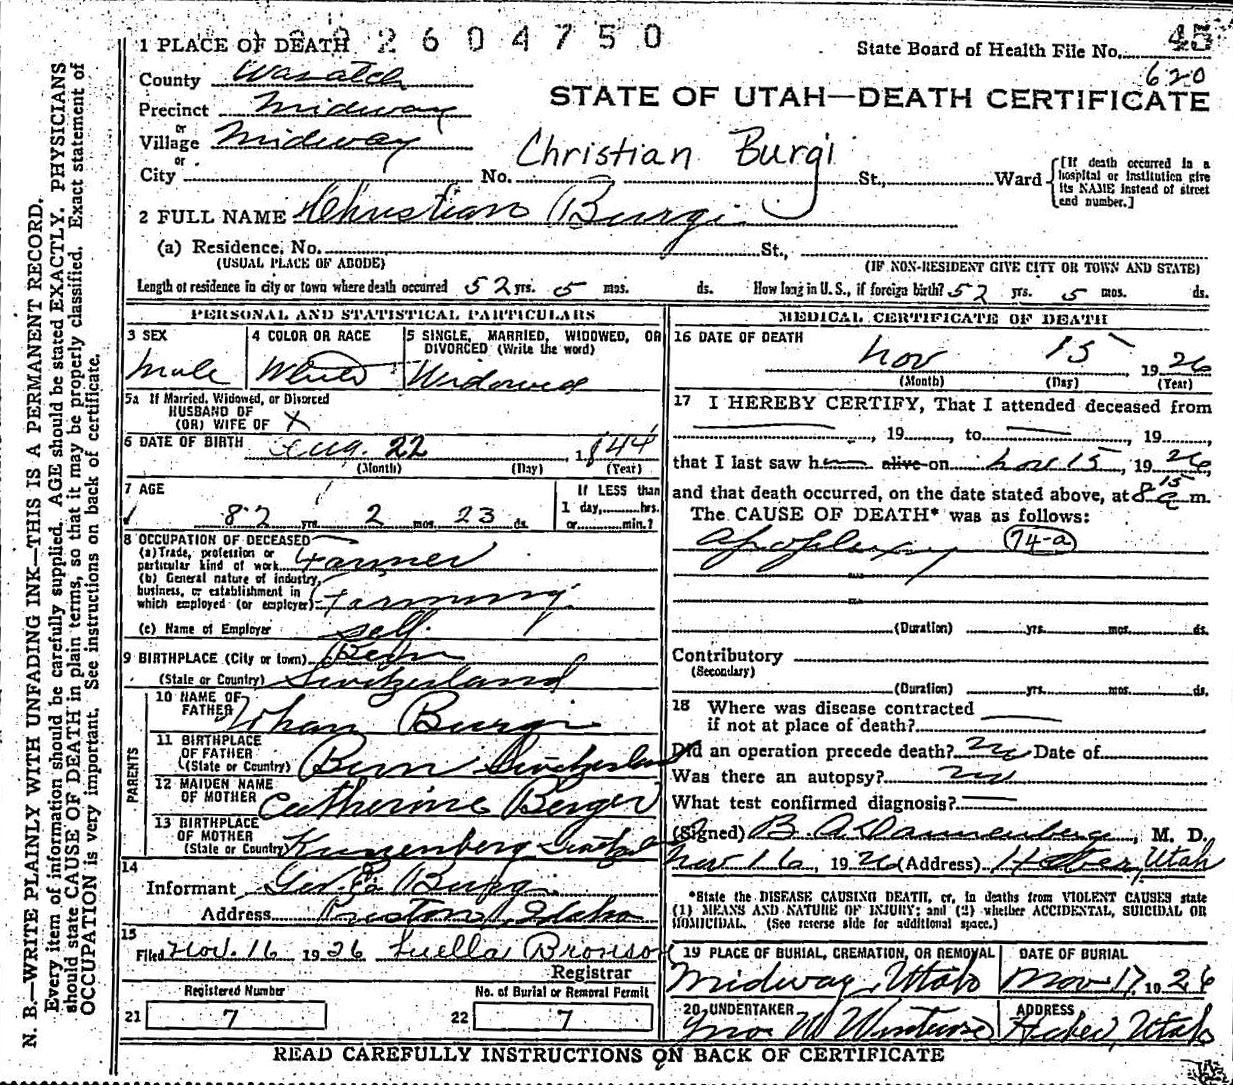 2604750
1 PLACE OF DEATH
State Board of Health File No. 45
620
County Wasatch
STATE OF UTAH—DEATH CERTIFICATE
Precinct Midway
or
Village Midway
Christian Burgi
or
City No. St., Ward [If death occurred in a hospital or institution give its NAME instead of street and number.]
2 FULL NAME Christian Burgi
(a) Residence, No. St.,
(USUAL PLACE OF ABODE) (IF NON-RESIDENT GIVE CITY OR TOWN AND STATE)
Length of residence in city or town where death occurred 52 yrs. 5 mos. ds. How long in U. S., if foreign birth? 52 yrs. 5 mos. ds.
PERSONAL AND STATISTICAL PARTICULARS
3 SEX
Male
4 COLOR OR RACE
White
5 SINGLE, MARRIED, WIDOWED, OR DIVORCED (Write the word)
Widowed
5a If Married, Widowed, or Divorced
HUSBAND OF
(OR) WIFE OF X
6 DATE OF BIRTH Aug. 22, 1844
(Month) (Day) (Year)
7 AGE
82 yrs. 2 mos. 23 ds.
If LESS than
1 day, hrs.
or min.?
8 OCCUPATION OF DECEASED
(a) Trade, profession or
particular kind of work Farmer
(b) General nature of industry,
business, or establishment in
which employed (or employer) Farming
(c) Name of Employer self.
9 BIRTHPLACE (City or town) Bern
(State or Country) Switzerland
PARENTS
10 NAME OF
FATHER Johan Burgi
11 BIRTHPLACE
OF FATHER
(State or Country) Bern Switzerland
12 MAIDEN NAME
OF MOTHER Catherine Berger
13 BIRTHPLACE
OF MOTHER
(State or Country)
14
Informant Burgi
Address Preston, Idaho
15
Filed Nov. 16 1926 Luella Bronson
Registrar
Registered Number
21 7
No. of Burial or Removal Permit
22 7
MEDICAL CERTIFICATE OF DEATH
16 DATE OF DEATH
Nov 15 1926
(Month) (Day) (Year)
17 I HEREBY CERTIFY, That I attended deceased from
, 19 , to , 19 ,
that I last saw h alive on Nov 15, 1926,
and that death occurred, on the date stated above, at 8 15 a m.
The CAUSE OF DEATH* was as follows:
Apoplexy 74-a
(Duration) yrs. mos. ds.
Contributory
(Secondary)
(Duration) yrs. mos. ds.
18 Where was disease contracted
if not at place of death?
Did an operation precede death? no Date of
Was there an autopsy? no
What test confirmed diagnosis?
(Signed) B. A. Dannenberg, M. D.
Nov 16, 1926 (Address) Heber, Utah
*State the DISEASE CAUSING DEATH, or, in deaths from VIOLENT CAUSES state
(1) MEANS AND NATURE OF INJURY; and (2) whether ACCIDENTAL, SUICIDAL OR
HOMICIDAL. (See reverse side for additional space.)
19 PLACE OF BURIAL, CREMATION, OR REMOVAL
Midway, Utah
DATE OF BURIAL
Nov 17 1926
20 UNDERTAKER
ADDRESS
Heber, Utah
READ CAREFULLY INSTRUCTIONS ON BACK OF CERTIFICATE
N. B.—WRITE PLAINLY WITH UNFADING INK—THIS IS A PERMANENT RECORD.
Every item of information should be carefully supplied. AGE should be stated EXACTLY. PHYSICIANS
should state CAUSE OF DEATH in plain terms, so that it may be properly classified. Exact statement of
OCCUPATION is very important. See instructions on back of certificate.